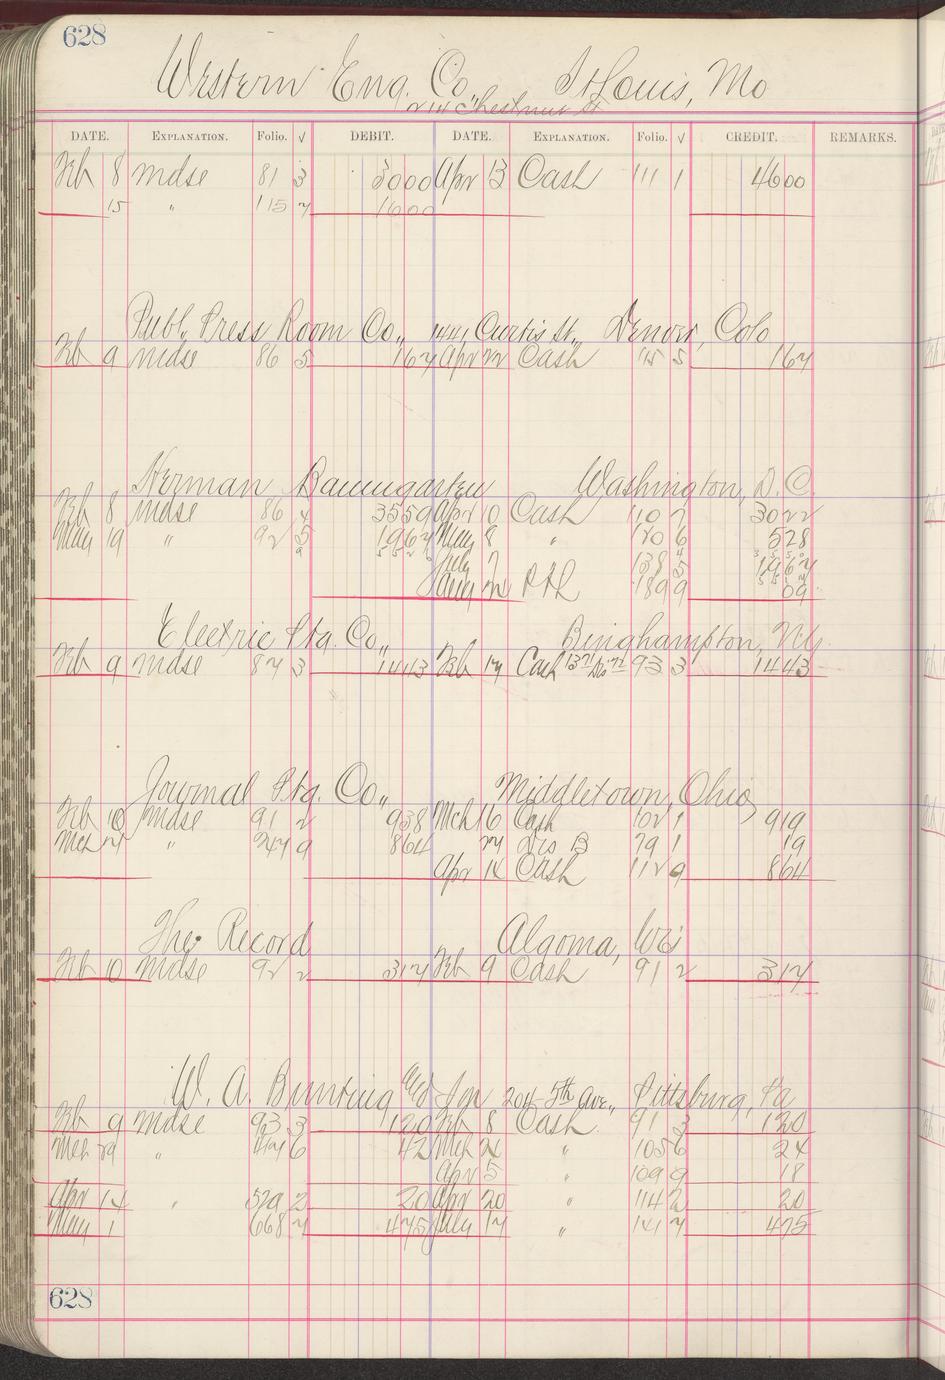 628
Western Eng. Co., St Louis, Mo
214 Chestnut St
DATE. EXPLANATION. Folio. √ DEBIT. DATE. EXPLANATION. Folio. √ CREDIT. REMARKS.
Feb 8 mdse 81 3 3000 Apr 13 Cash 111 1 4600
15 " 115 7 1600
Publ. Press Room Co., 1441 Curtis St., Denver, Colo
Feb 9 mdse 86 5 167 Apr 22 Cash 115 5 167
Herman Baumgarten Washington, D. C.
Feb 8 mdse 86 4 3559 Apr 10 Cash 110 7 3022
May 19 " 92 5 1967 May 8 " 120 6 528
July 7 138 5 1967
Aug 22 P&L 189 9 09
Electric Ptg. Co., Binghampton, Ny.
Feb 9 mdse 87 3 1443 Feb 17 Cash 93 3 1443
Journal Ptg. Co., Middletown, Ohio
Feb 10 mdse 91 2 938 Mch 16 Cash 102 1 919
Mch 27 " 347 9 864 27 Dis B 79 1 19
Apr 14 Cash 112 9 864
The Record Algoma, Wis
Feb 10 mdse 92 2 317 Feb 9 Cash 91 2 317
W. A. Bunting 204 5th Ave., Pittsburg, Pa
Feb 9 mdse 93 3 120 Feb 8 Cash 91 3 120
Mch 29 " 447 6 42 Mch 24 " 105 6 24
Apr 5 " 109 9 18
Apr 14 " 529 2 20 Apr 20 " 114 2 20
May 1 " 668 7 475 July 17 " 141 7 475
628